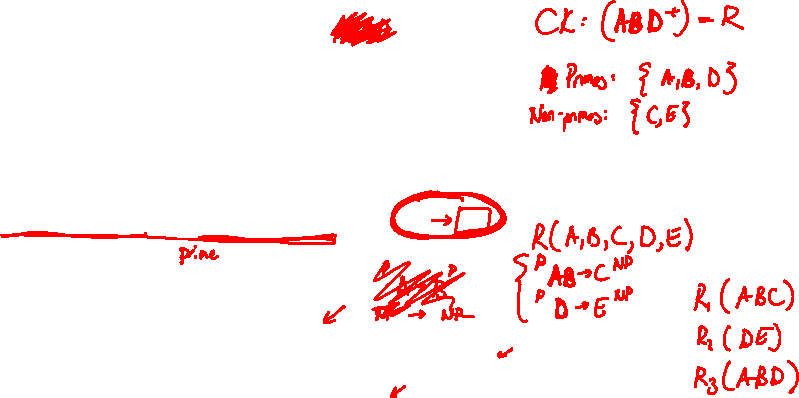 CK: (ABD⁺) = R
Primes: {A,B,D}
Non-primes: {C,E}
prime
R(A,B,C,D,E)
P AB→C NP
P D→E NP
→ NP
R₁(ABC)
R₂(DE)
R₃(ABD)